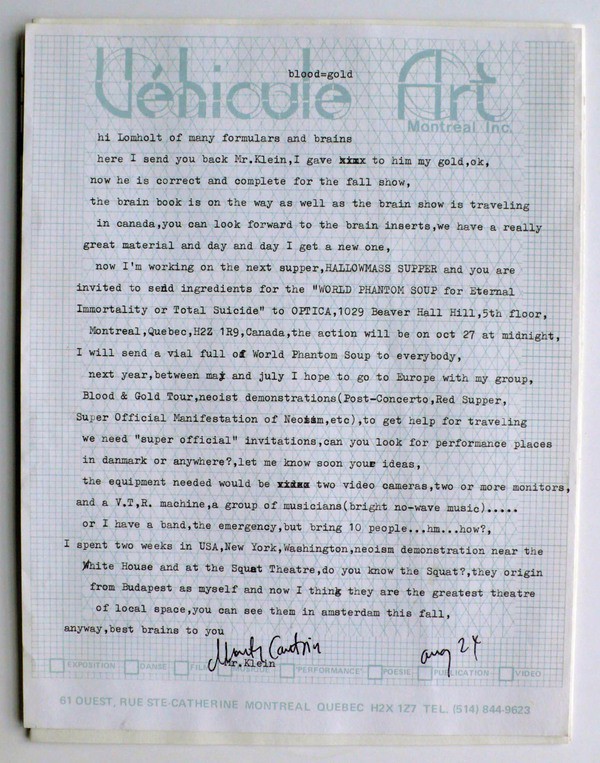 Véhicule Art
blood=gold
Montreal Inc.
hi Lomholt of many formulars and brains
here I send you back Mr.Klein,I gave to him my gold,ok,
now he is correct and complete for the fall show,
the brain book is on the way as well as the brain show is traveling
in canada,you can look forward to the brain inserts,we have a really
great material and day and day I get a new one,
now I'm working on the next supper,HALLOWMASS SUPPER and you are
invited to send ingredients for the "WORLD PHANTOM SOUP for Eternal
Immortality or Total Suicide" to OPTICA,1029 Beaver Hall Hill,5th floor,
Montreal,Quebec,H2Z 1R9,Canada,the action will be on oct 27 at midnight,
I will send a vial full of World Phantom Soup to everybody,
next year,between may and july I hope to go to Europe with my group,
Blood & Gold Tour,neoist demonstrations(Post-Concerto,Red Supper,
Super Official Manifestation of Neoism,etc),to get help for traveling
we need "super official" invitations,can you look for performance places
in danmark or anywhere?,let me know soon your ideas,
the equipment needed would be two video cameras,two or more monitors,
and a V.T,R. machine,a group of musicians(bright no-wave music).....
or I have a band,the emergency,but bring 10 people...hm...how?,
I spent two weeks in USA,New York,Washington,neoism demonstration near the
White House and at the Squat Theatre,do you know the Squat?,they origin
from Budapest as myself and now I think they are the greatest theatre
of local space,you can see them in amsterdam this fall,
anyway,best brains to you
aug 24
Mr.Klein
EXPOSITION DANSE MUSIQUE "PERFORMANCE" POESIE PUBLICATION VIDEO
61 OUEST, RUE STE-CATHERINE MONTREAL QUEBEC H2X 1Z7 TEL. (514) 844-9623